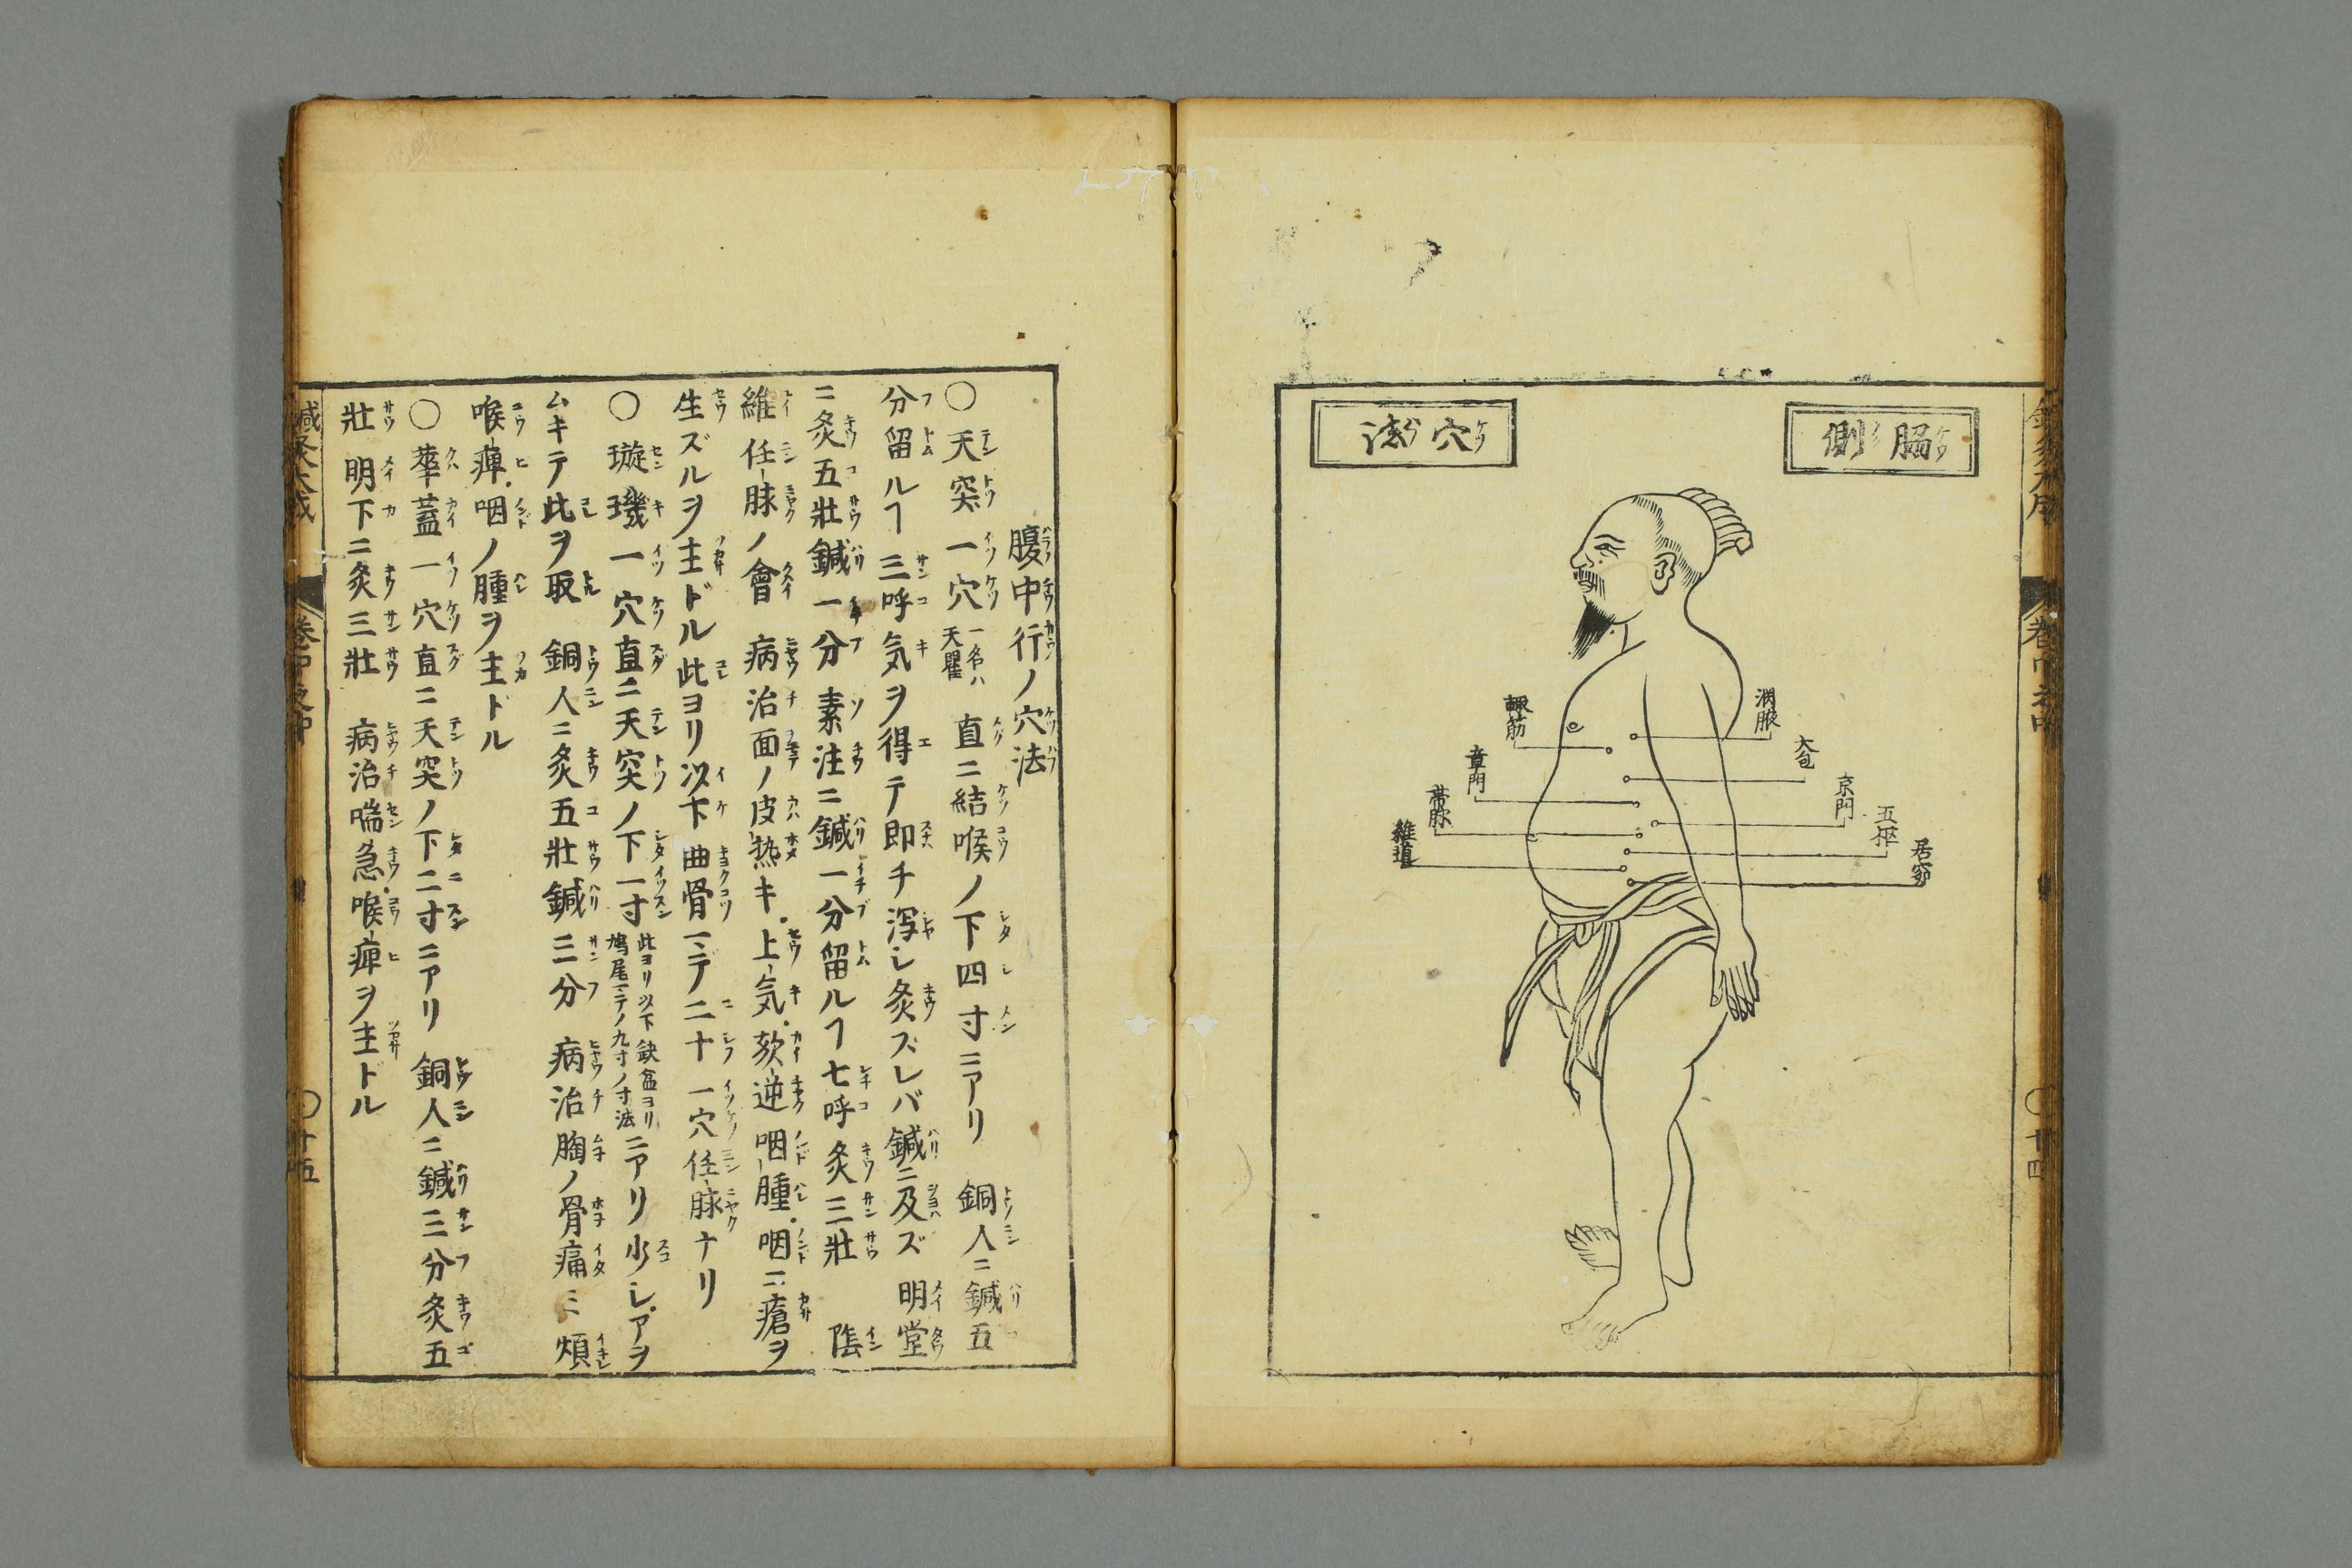 脇側
穴法
淵腋
大包
京門
五枢
居窌
輙筋
章門
帯脉
維道
卷中之中
〇廿四
腹中行ノ穴法
〇天突一穴 一名ハ天瞿 直ニ結喉ノ下四寸ニアリ 銅人ニ鍼五
分留ルヿ三呼気ヲ得テ即チ瀉シ灸ズレバ鍼ニ及ズ 明堂
ニ灸五壯鍼一分 素注ニ鍼一分留ルヿ七呼灸三壯 陰
維任脉ノ會 病治面ノ皮熱キ上気欬逆咽腫咽ニ瘡ヲ
生ズルヲ主ドル此ヨリ以下曲骨マデ二十一穴任脉ナリ
〇璇璣一穴直ニ天突ノ下一寸 此ヨリ以下缺盆ヨリ鳩尾マテノ九寸ノ寸法 ニアリ少シアヲ
ムキテ此ヲ取 銅人ニ灸五壯鍼三分 病治胸ノ骨痛ミ煩
喉痺咽ノ腫ヲ主ドル
〇華蓋一穴直ニ天突ノ下二寸ニアリ 銅人ニ鍼三分灸五
壯 明下ニ灸三壯 病治喘急喉痺ヲ主ドル
鍼灸大成
卷中之中
〇廿五